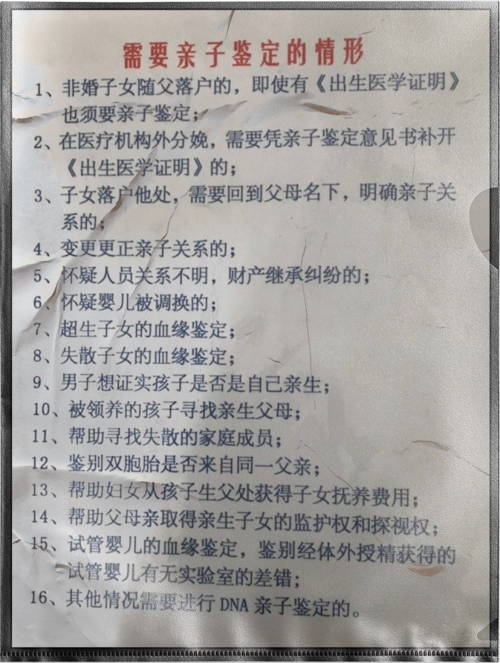 需要亲子鉴定的情形
1、非婚子女随父落户的，即使有《出生医学证明》
也须要亲子鉴定；
2、在医疗机构外分娩，需要凭亲子鉴定意见书补开
《出生医学证明》的；
3、子女落户他处，需要回到父母名下，明确亲子关
系的；
4、变更更正亲子关系的；
5、怀疑人员关系不明，财产继承纠纷的；
6、怀疑婴儿被调换的；
7、超生子女的血缘鉴定；
8、失散子女的血缘鉴定；
9、男子想证实孩子是否是自己亲生；
10、被领养的孩子寻找亲生父母；
11、帮助寻找失散的家庭成员；
12、鉴别双胞胎是否来自同一父亲；
13、帮助妇女从孩子生父处获得子女抚养费用；
14、帮助父母亲取得亲生子女的监护权和探视权；
15、试管婴儿的血缘鉴定，鉴别经体外授精获得的
试管婴儿有无实验室的差错；
16、其他情况需要进行DNA亲子鉴定的。